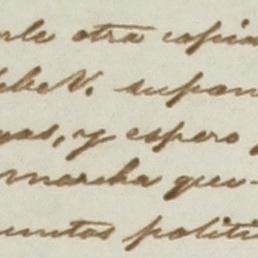 rle otra copia
debe V. supon
gas, y espero
marcha que
untos politi